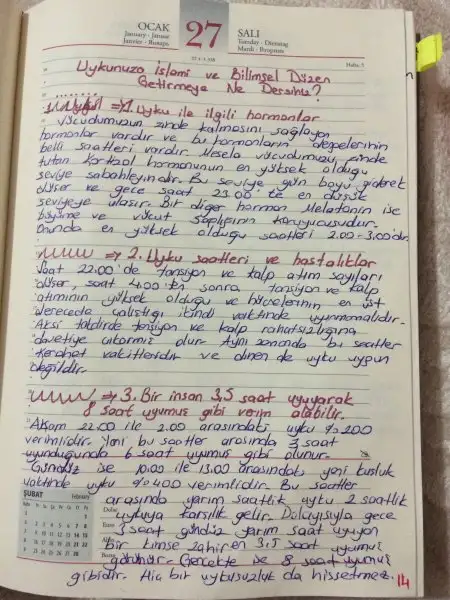 OCAK
January - Januar
Janvier - Январь
27
SALI
Tuesday - Dienstag
Mardi - Вторник
Hafta: 5
Uykunuza İslami ve Bilimsel Düzen
Getirmeye Ne Dersiniz?
⇒ 1. Uyku ile ilgili hormonlar
Vücudumuzun zinde kalmasını sağlayan
hormonlar vardır ve bu hormonların değerlerinin
belli saatleri vardır. Mesela vücudumuzu zinde
tutan kortizol hormonunun en yüksek olduğu
seviye sabahleyindir. Bu seviye gün boyu giderek
düşer ve gece saat 23.00'te en düşük
seviyeye ulaşır. Bir diğer hormon Melatonin ise
büyüme ve vücut sağlığının koruyucusudur.
Onunda en yüksek olduğu saatleri 2.00-3.00'dır.
⇒ 2. Uyku saatleri ve hastalıklar
Saat 22.00'de tansiyon ve kalp atım sayıları
düşer, saat 4.00'ten sonra tansiyon ve kalp
atımının yüksek olduğu ve hücrelerinin en üst
derecede çalıştığı ikindi vaktinde uyunmamalıdır.
Aksi takdirde tansiyon ve kalp rahatsızlığına
davetiye çıkarmış olur. Aynı zamanda bu saatler
Kerahat vakitleridir ve dinen de uyku uygun
değildir.
⇒ 3. Bir insan 3,5 saat uyuyarak
8 saat uyumuş gibi verim alabilir.
Akşam 22.00 ile 2.00 arasındaki uyku %200
verimlidir. Yani bu saatler arasında 3 saat
uyunduğunda 6 saat uyumuş gibi olunur.
Gündüz ise 10.00 ile 13.00 arasındaki yani kuşluk
vaktinde uyku %400 verimlidir. Bu saatler
arasında yarım saatlik uyku 2 saatlik
uykuya karşılık gelir. Dolayısıyla gece
3 saat gündüz yarım saat uyuyan
bir kimse zahiren 3,5 saat uyumuş
görünür. Gerçekte ise 8 saat uyumuş
gibidir. Hiç bir uykusuzluk da hissetmez.
ŞUBAT
February
14